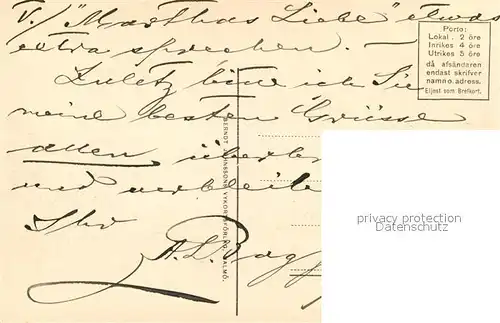 V./ "Marthas Liebe" etwas
extra sprechen. —
Zuletzt bitte ich Sie
meine besten Grüsse
allen
und
Ihr
Porto:
Lokal. 2 öre
Inrikes 4 öre
Utrikes 5 öre
då afsändaren
endast skrifver
namn o. adress.
Eljest som Brefkort.
MALMÖ.
privacy protection
oldthing.com